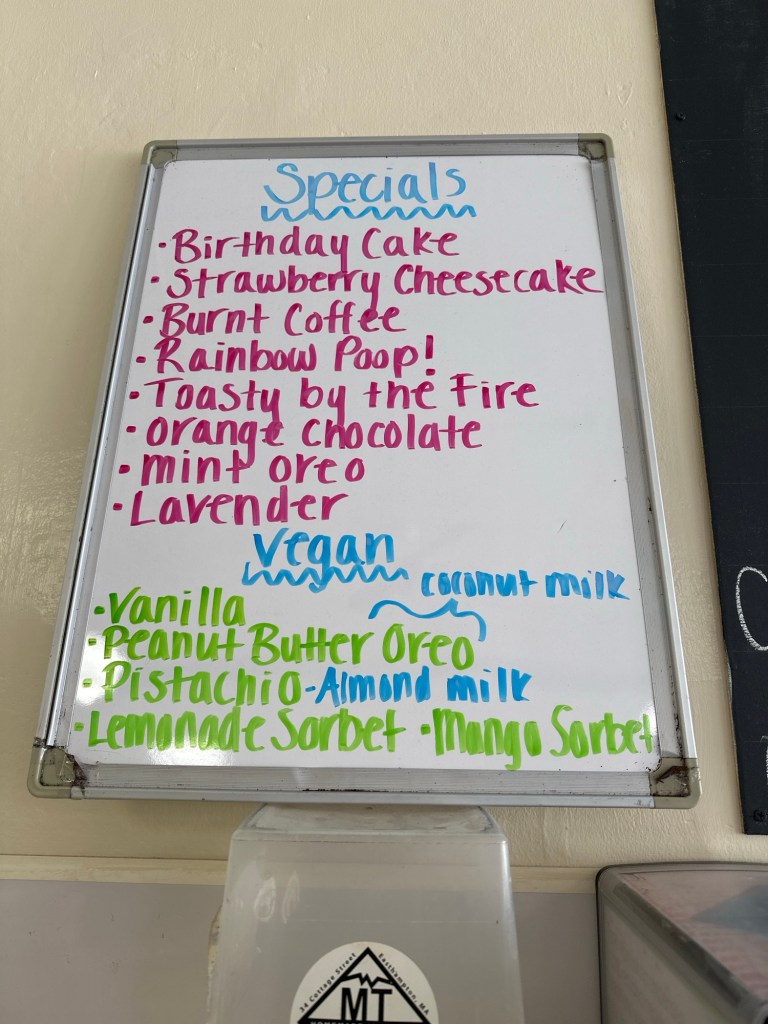 Specials
•Birthday Cake
•Strawberry Cheesecake
•Burnt Coffee
•Rainbow Poop!
•Toasty by the Fire
•orange chocolate
•mint oreo
•Lavender
Vegan
coconut milk
•Vanilla
•Peanut Butter Oreo
•Pistachio-Almond milk
•Lemonade Sorbet •Mango Sorbet
34 Cottage Street Easthampton, MA.
MT